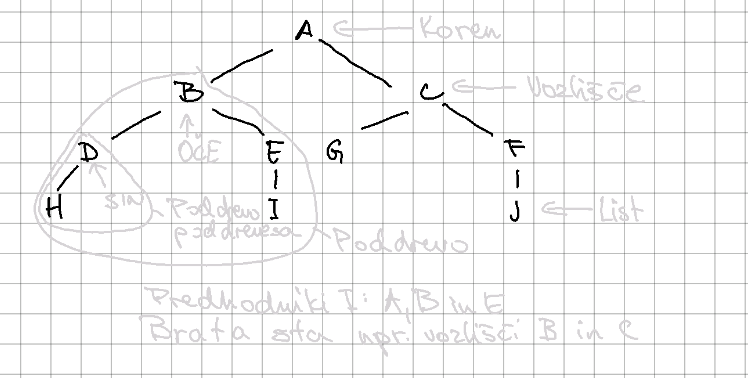 A ← Koren
B C ← Vozlišče
D OČE E G F
H SIN Poddrevo I J ← List
poddrevesa Poddrevo
Predhodniki I: A, B in E
Brata sta npr. vozlišči B in C